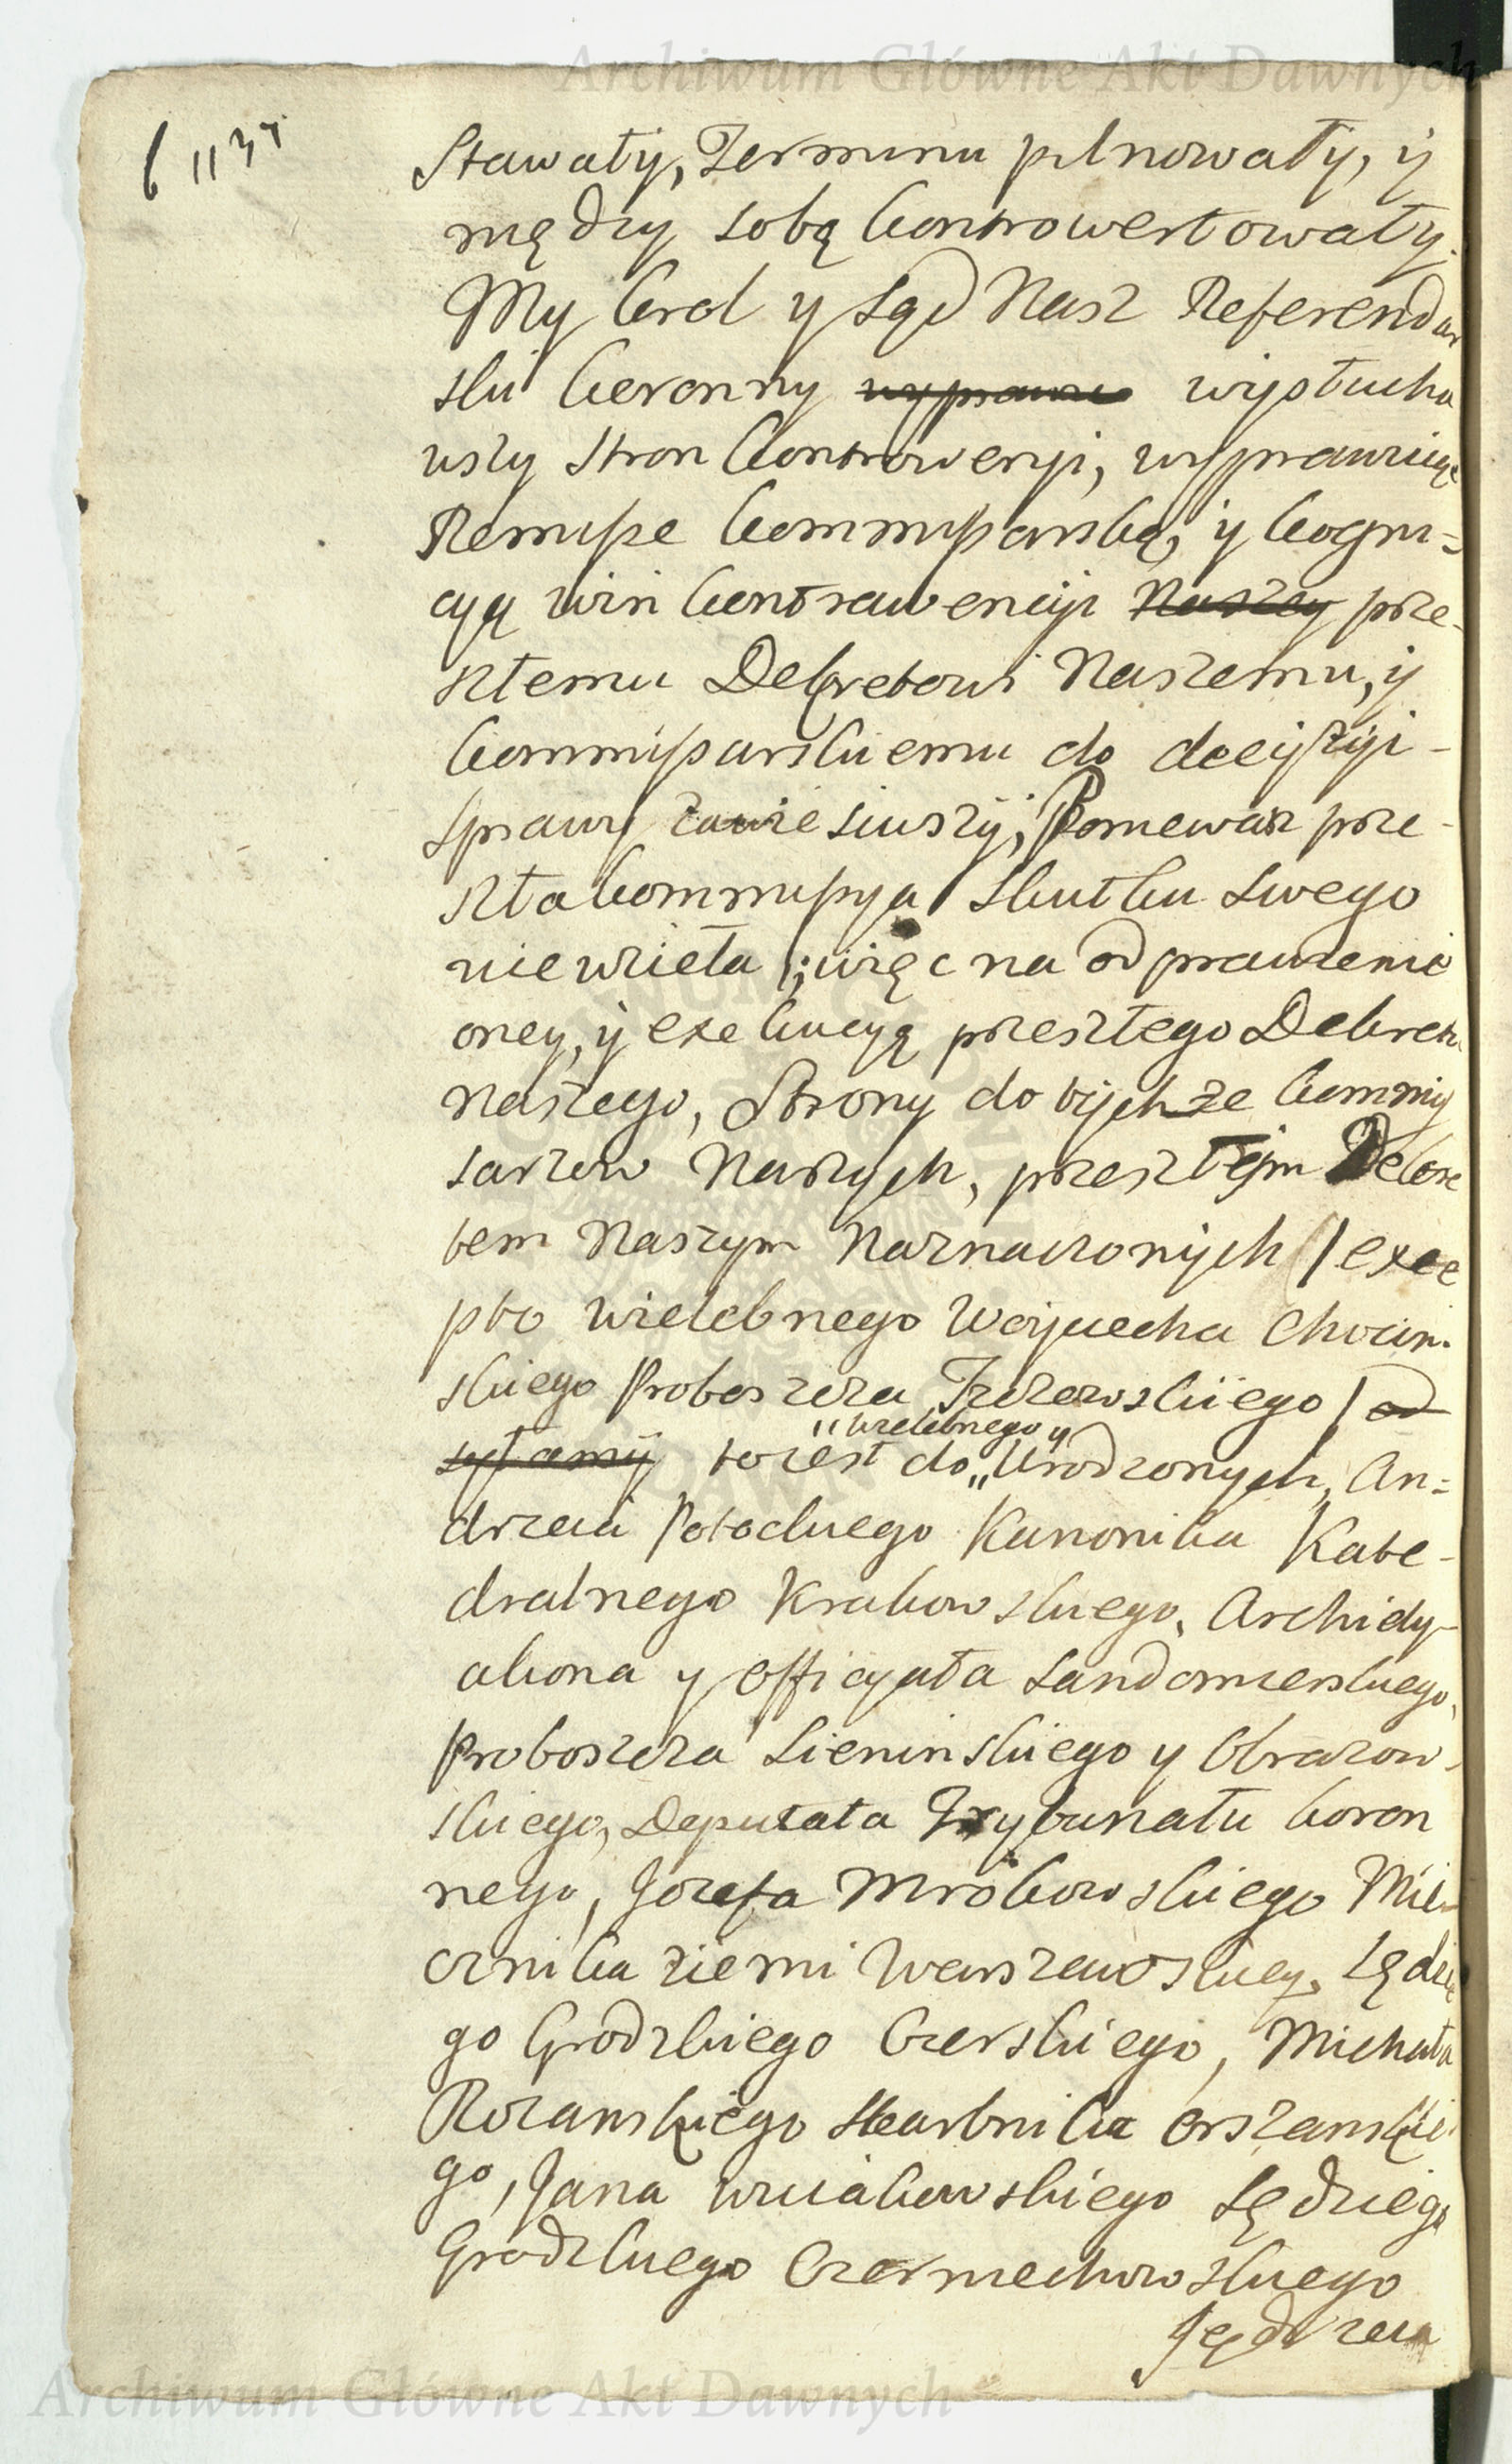 Archiwum Główne Akt Dawnych
Stawały, Terminu pilnowały, y
między sobą kontrowertowały.
My Krol y Sąd Nasz Referendar
ski Koronny wyprawu wysłucha
wszy Stron Kontrowersyi, wyprawuiąc
Remisse Kommissarską, y kogni=
cyą win kontrawencyi Naszey prze-
szłemu Dekretowi Naszemu, y
Kommissarskiemu do decyzyi -
sprawy zawiesiwszy, Ponieważ prze-
szła kommissya skutku swego
niewzieła, więc na odprawienie
oney, y exekucyą przeszłego Dekretu
Naszego, Strony do tychże Kommis
sarzow Naszych, przeszłym Dekre
tem Naszym Naznaczonych / exce
pto wielebnego Woyciecha
skiego Proboszcza / od
syłamy to iest do "Urodzonych, An=
"wielebnego y
drzeia Potockiego Kanonika Kate-
dralnego Krakowskiego, Archidy-
akona y Officyała Sandomierskiego,
Proboszcza Sieninskiego y Obrazow-
skiego, Deputata Trybunału Koron
nego, Jozefa Mrokowskiego Mie-
cznika ziemi Warszawskiey, Sędzie
go Grodzkiego Czerskiego, Michała
Rozanskiego Skarbnika Orszanskie
go, Jana Sędziego
Grodzkiego
Jędrzeia
Archiwum Główne Akt Dawnych